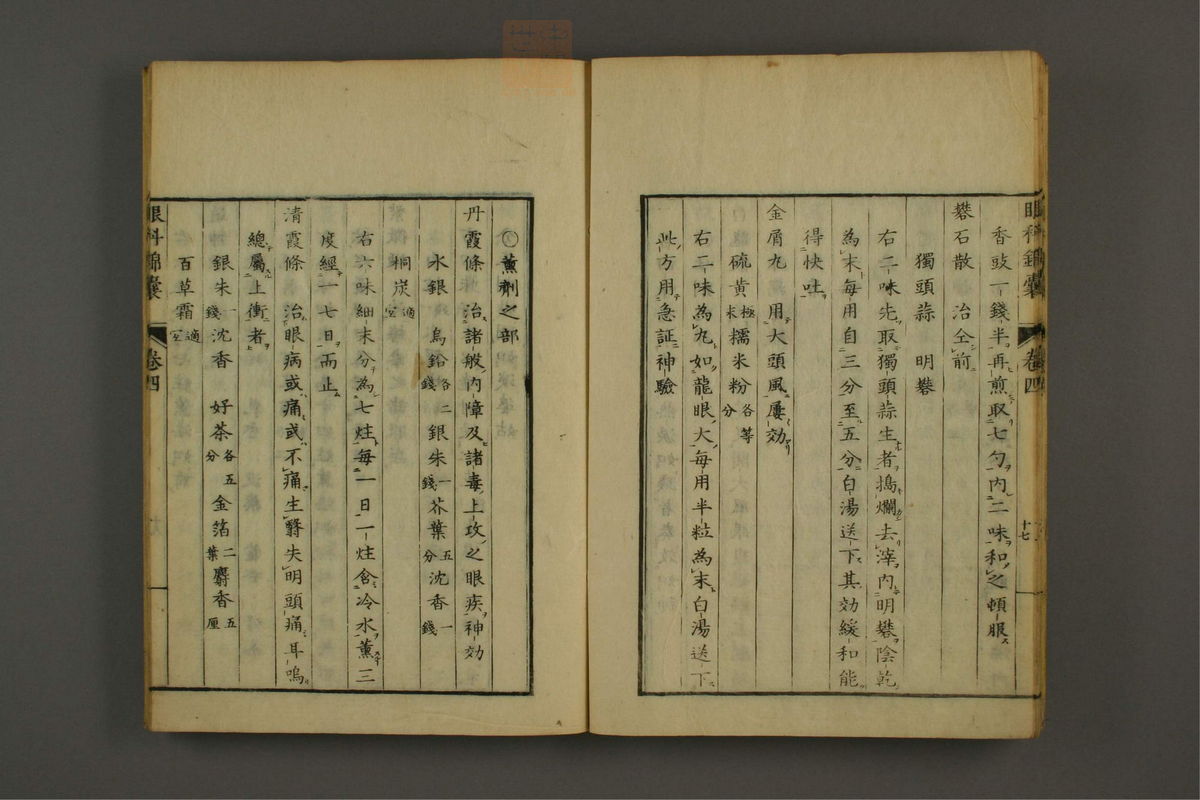 眼科錦囊 卷四 十七
香豉一錢半再煎取七勺内二味和之頓服
礬石散 治仝前
獨頭蒜 明礬
右二味先取獨頭蒜生者搗爛去滓内明礬陰乾
為末每用自三分至五分白湯送下其効緩和能
得快吐
金屑丸 用大頭風屢効
硫黄 極末 糯米粉 各等分
右二味為丸如龍眼大每用半粒為末白湯送下
此方用急証神驗
○薰劑之部
丹霞條 治諸般内障及諸毒上攻之眼疾神効
水銀 烏鉛 各二錢 銀朱 一錢 芥葉 五分 沈香 一錢
桐炭 適宜
右六味細末分為七炷每一日一炷含冷水薰三
度經一七日而止
清霞條 治眼病或痛或不痛生翳失明頭痛耳鳴
總屬上衝者
銀朱 一錢 沈香 好茶 各五分 金箔 二葉 麝香 五厘
百草霜 適宜
眼科錦囊 卷四